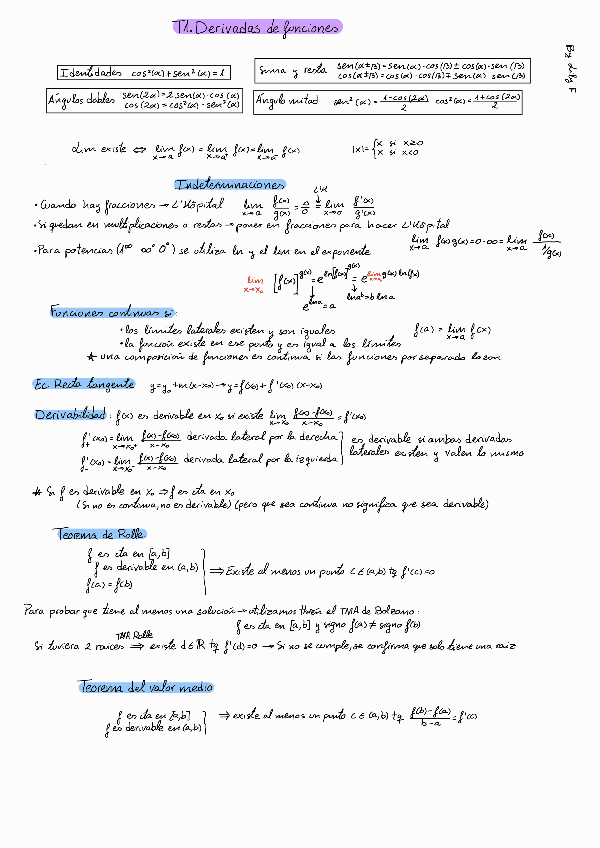 T1. Derivadas de funciones
By Lby F
Identidades cos²(α)+sen²(α)=1
Suma y resta sen(α±β)=sen(α)·cos(β)±cos(α)·sen(β)
cos(α±β)=cos(α)·cos(β)∓sen(α)·sen(β)
Ángulos dobles sen(2α)=2sen(α)·cos(α)
cos(2α)=cos²(α)-sen²(α)
Ángulo mitad sen²(α)=1-cos(2α)/2 cos²(α)=1+cos(2α)/2
Lim existe ⇔ lim x→a f(x) = lim x→a⁺ f(x) = lim x→a⁻ f(x)
|x|={x si x≥0
x si x<0
Indeterminaciones
• Cuando hay fracciones → L'Hôpital lim x→a f(x)/g(x) = 0/0 = lim x→a f'(x)/g'(x)
L'H ↓
• Si quedan en multiplicaciones o restas → poner en fracciones para hacer L'Hôpital
lim x→a f(x)g(x)=0·∞=lim x→a f(x)/1/g(x)
• Para potencias (1^∞ ∞⁰ 0⁰) se utiliza ln y el lim en el exponente
lim x→x₀ [f(x)]^g(x) = e^ln[f(x)]^g(x) = e^lim x→x₀ g(x) ln(fx)
e^lna = a
ln a^b = b ln a
Funciones continuas si:
• los límites laterales existen y son iguales
f(a) = lim x→a f(x)
• la función existe en ese punto y es igual a los límites
* una composición de funciones es continua si las funciones por separado lo son
Ec. Recta tangente y=y₀+m(x-x₀)→y=f(x₀)+f'(x₀)(x-x₀)
Derivabilidad: f(x) es derivable en x₀ si existe lim x→x₀ f(x)-f(x₀)/x-x₀ = f'(x₀)
f'₊(x₀)=lim x→x₀⁺ f(x)-f(x₀)/x-x₀ derivada lateral por la derecha
f'₋(x₀)=lim x→x₀⁻ f(x)-f(x₀)/x-x₀ derivada lateral por la izquierda
es derivable si ambas derivadas
laterales existen y valen lo mismo
* Si f es derivable en x₀ ⇒ f es cta en x₀
(Si no es continua, no es derivable) (pero que sea continua no significa que sea derivable)
Teorema de Rolle
f es cta en [a,b]
f es derivable en (a,b)
f(a) = f(b)
⇒ Existe al menos un punto c∈(a,b) tq f'(c)=0
Para probar que tiene al menos una solución → utilizamos el TMA de Bolzano:
f es cta en [a,b] y signo f(a) ≠ signo f(b)
TMA Rolle
Si tuviera 2 raíces ⇒ existe d∈ℝ tq f'(d)=0 → Si no se cumple, se confirma que solo tiene una raíz
Teorema del valor medio
f es cta en [a,b]
f es derivable en (a,b)
⇒ existe al menos un punto c∈(a,b) tq f(b)-f(a)/b-a = f'(c)